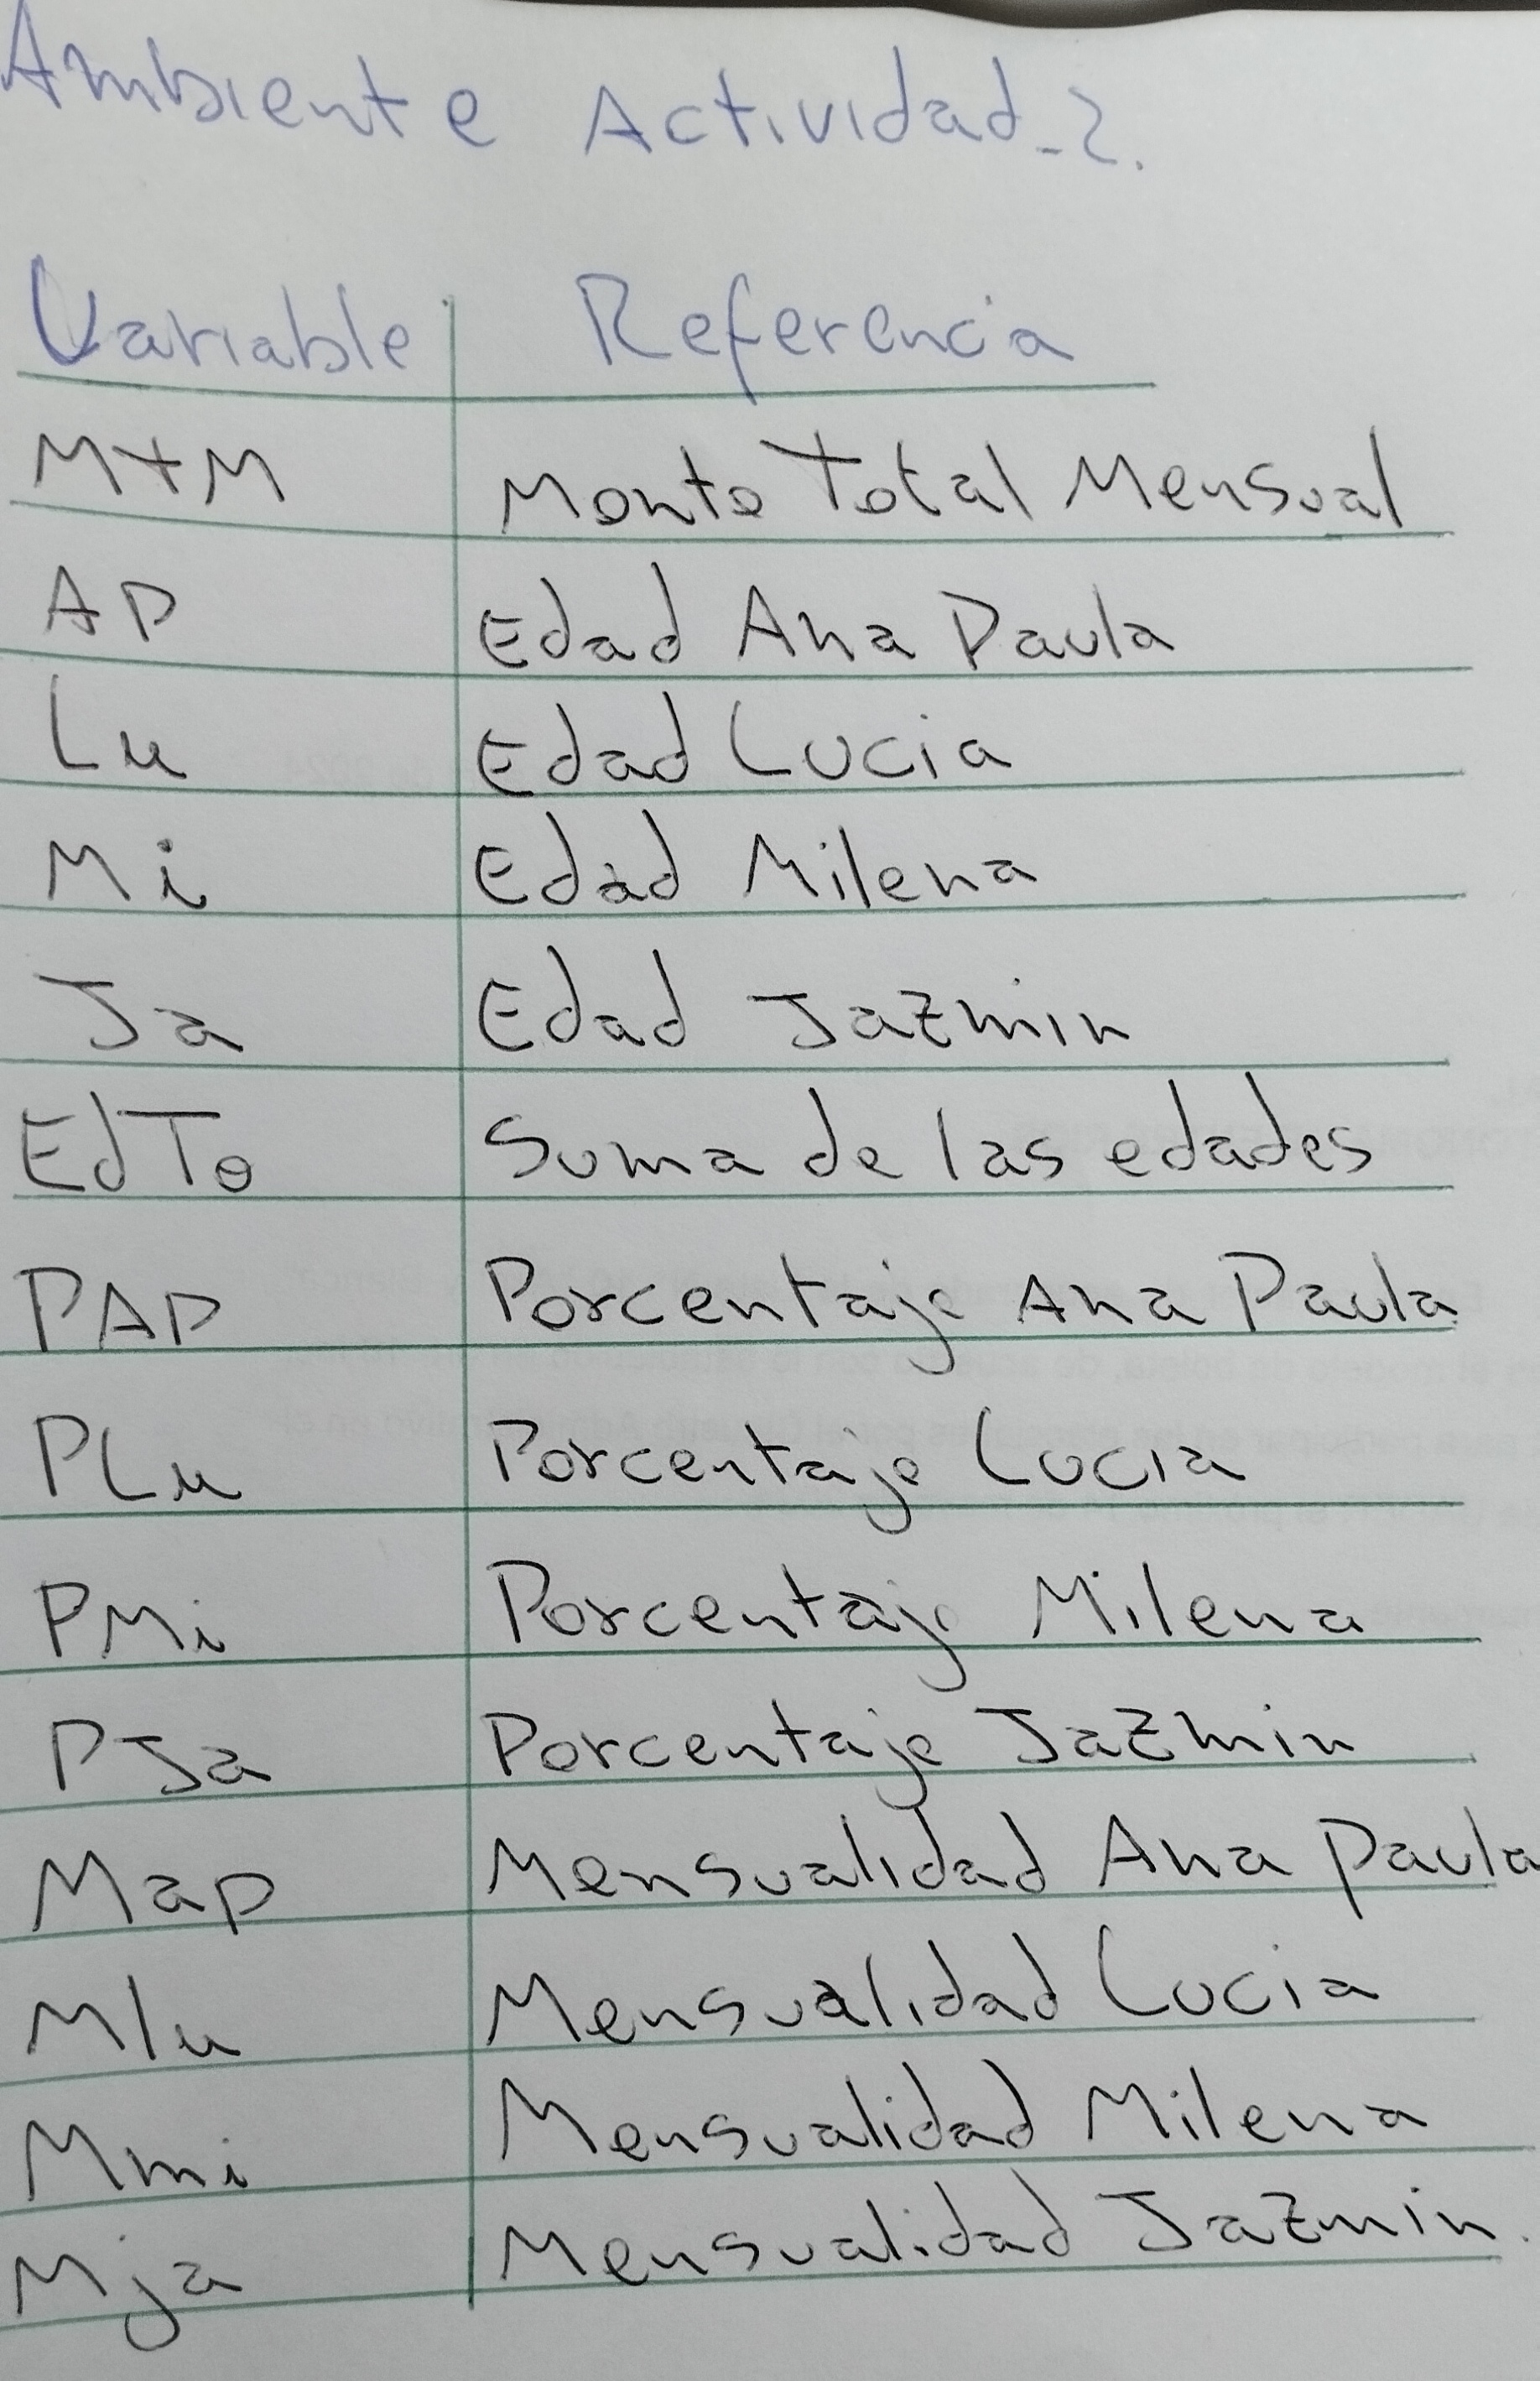 Ambiente Actividad-2.
Variable Referencia
MtM Monto Total Mensual
AP Edad Ana Paula
Lu Edad Lucia
Mi Edad Milena
Ja Edad Jazmin
EdTo Suma de las edades
PAP Porcentaje Ana Paula
PLu Porcentaje Lucia
PMi Porcentaje Milena
PJa Porcentaje Jazmin
Map Mensualidad Ana Paula
Mlu Mensualidad Lucia
Mmi Mensualidad Milena
Mja Mensualidad Jazmin.